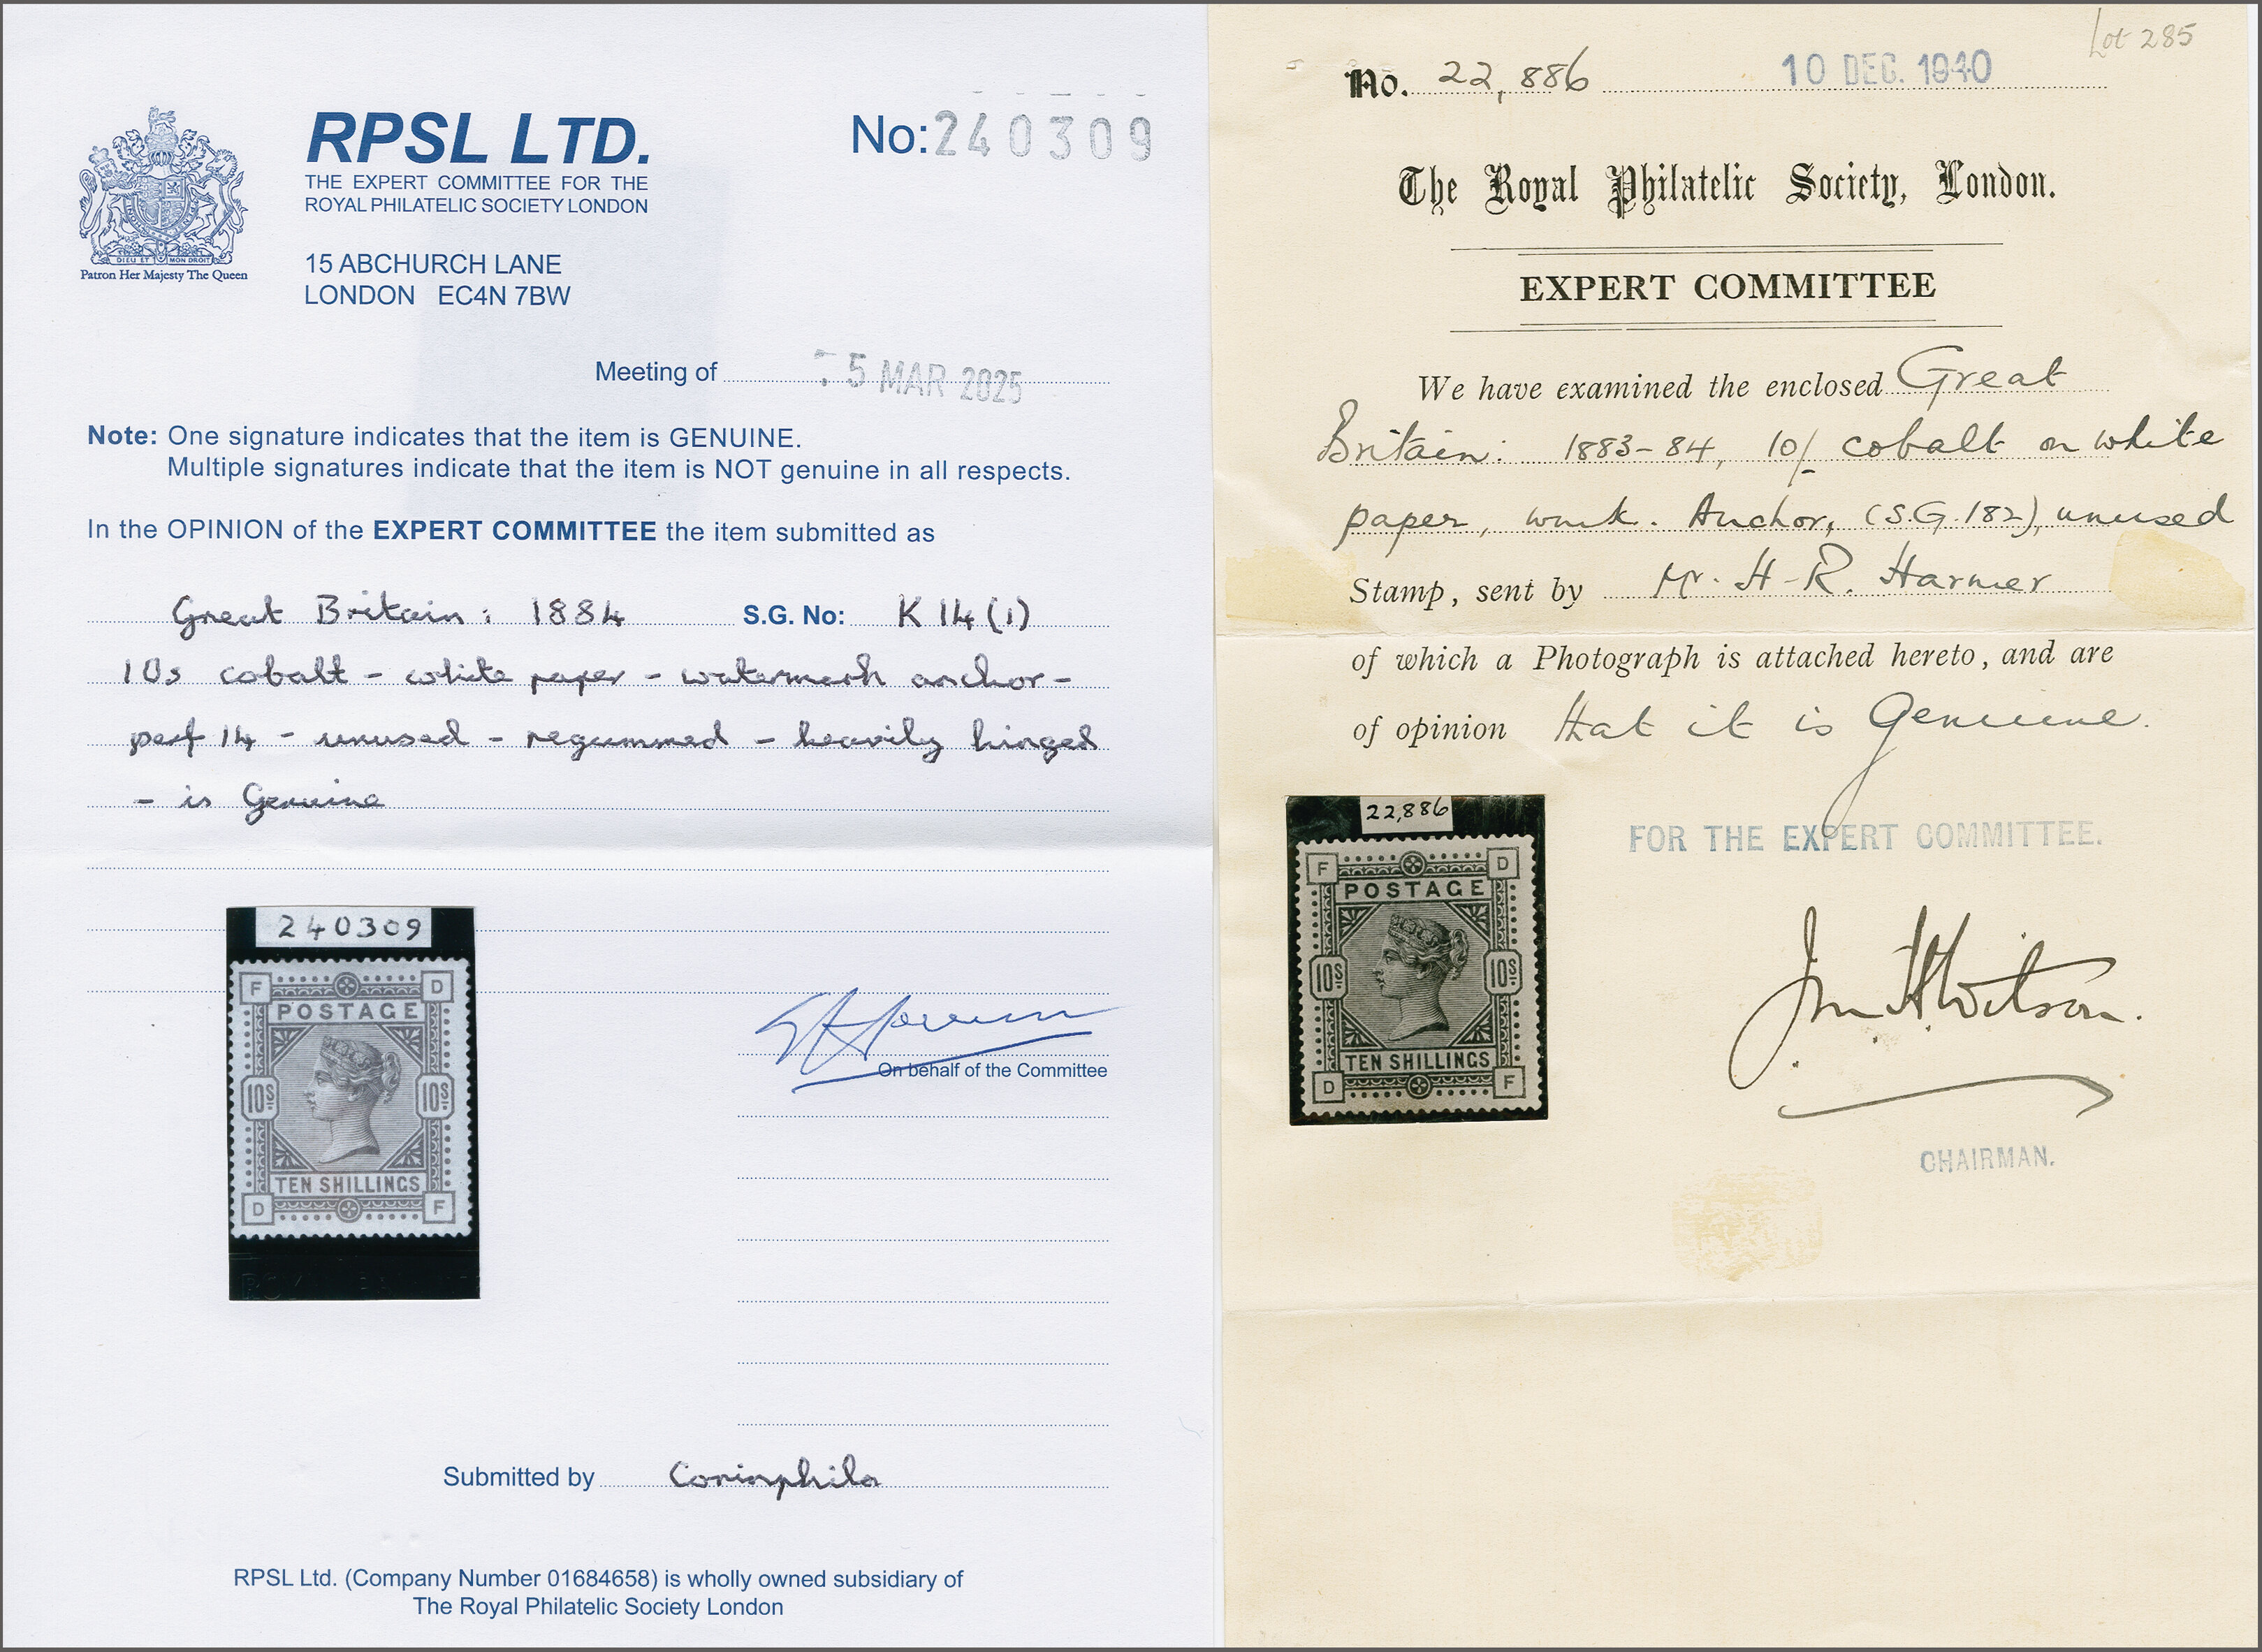 RPSL LTD.
THE EXPERT COMMITTEE FOR THE
ROYAL PHILATELIC SOCIETY LONDON
15 ABCHURCH LANE
LONDON EC4N 7BW
DIEU ET MON DROIT
Patron Her Majesty The Queen
No: 240309
Meeting of 5 MAR 2025
Note: One signature indicates that the item is GENUINE.
Multiple signatures indicate that the item is NOT genuine in all respects.
In the OPINION of the EXPERT COMMITTEE the item submitted as
Great Britain: 1884 S.G. No: K14(1)
10s cobalt - white paper - watermark anchor -
perf 14 - unused - regummed - heavily hinged
- is Genuine
240309
F D
POSTAGE
10S 10S
TEN SHILLINGS
D F
On behalf of the Committee
Submitted by Corinphila
RPSL Ltd. (Company Number 01684658) is wholly owned subsidiary of
The Royal Philatelic Society London
Lot 285
No. 22,886 10 DEC. 1940
The Royal Philatelic Society, London.
EXPERT COMMITTEE
We have examined the enclosed Great
Britain: 1883-84, 10/- cobalt on white
paper, wmk. Anchor, (S.G.182), unused
Stamp, sent by Mr. H-R. Harmer
of which a Photograph is attached hereto, and are
of opinion that it is Genuine.
22,886
F D
POSTAGE
10S 10S
TEN SHILLINGS
D F
FOR THE EXPERT COMMITTEE.
Jn. H. Wilson.
CHAIRMAN.